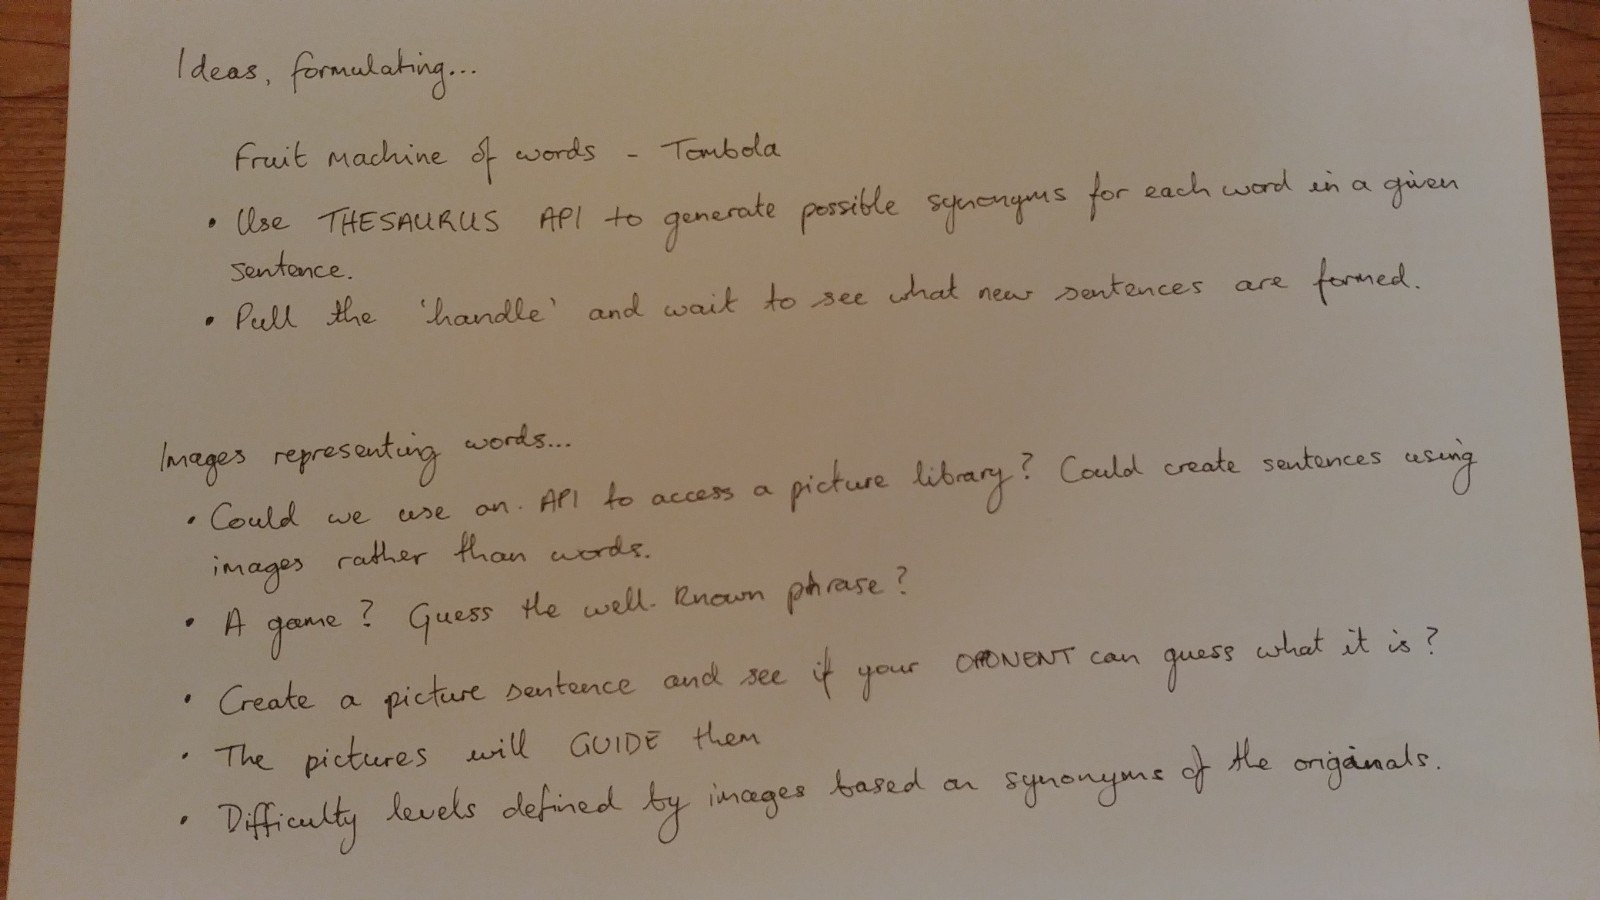 Ideas, formulating...
Fruit machine of words - Tombola
• Use THESAURUS API to generate possible synonyms for each word in a given
sentence.
• Pull the 'handle' and wait to see what new sentences are formed.
Images representing words...
• Could we use an API to access a picture library? Could create sentences using
images rather than words.
• A game? Guess the well-known phrase?
• Create a picture sentence and see if your OPONENT can guess what it is?
• The pictures will GUIDE them
• Difficulty levels defined by images based on synonyms of the originals.